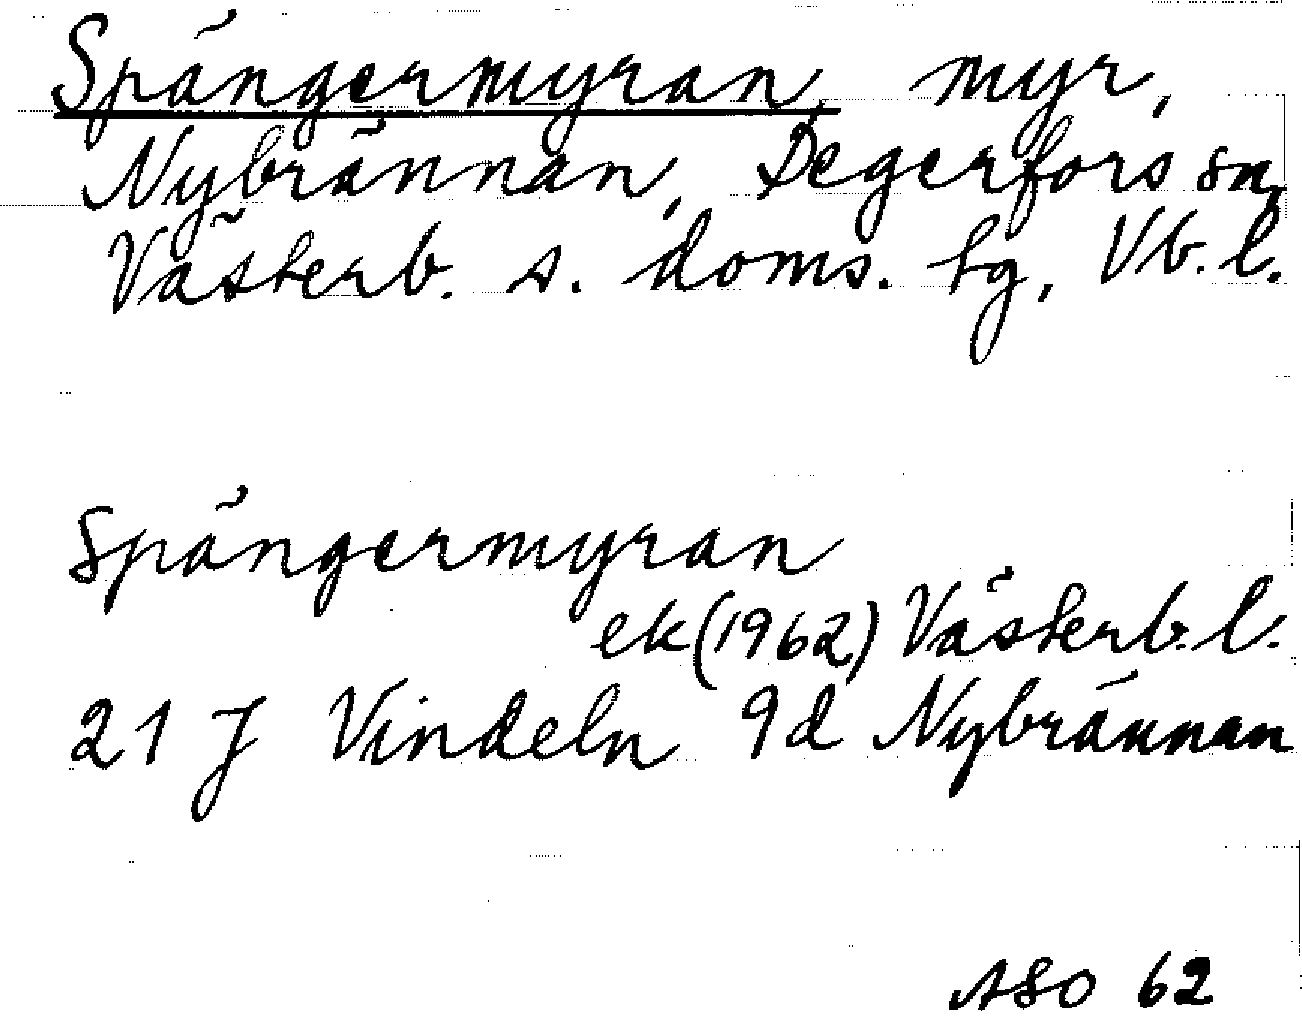 Spängermyran, myr,
Nybrännan, Degerfors sn,
Västerb. s. doms. tg, Vb. l.
Spängermyran
ek (1962) Västerb. l.
21 J Vindeln 9d Nybrännan
ASO 62